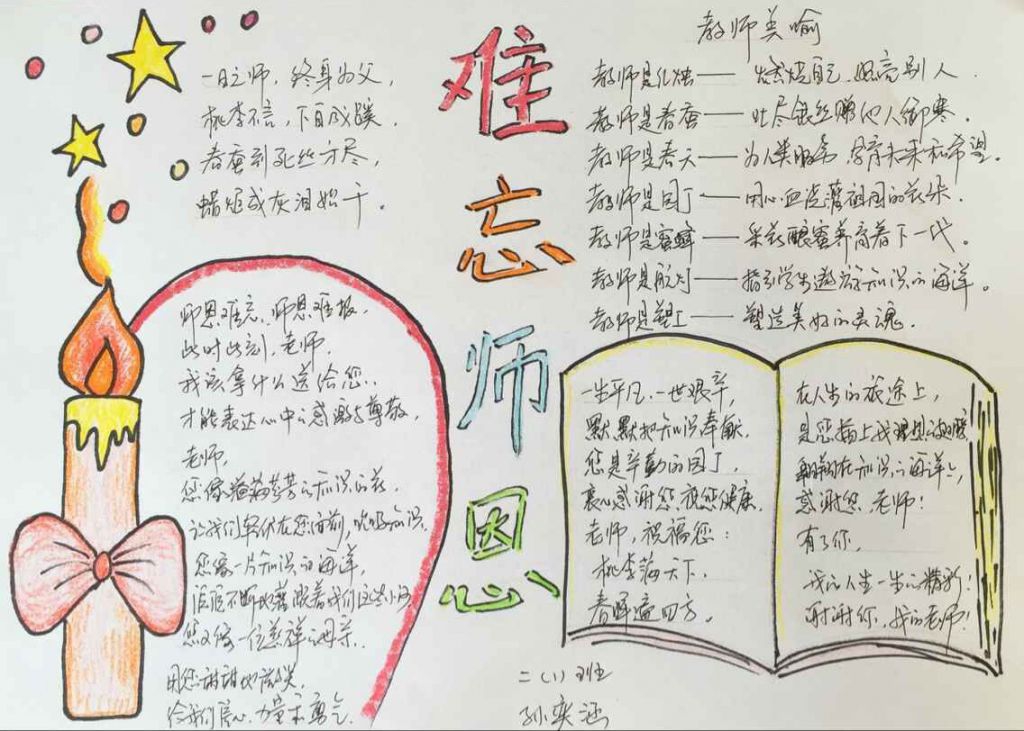 难忘师恩
一日之师，终身为父，
桃李不言，下自成蹊
春蚕到死丝方尽，
蜡炬成灰泪始干。
教师美喻
教师是红烛——燃烧自己，照亮别人.
教师是春蚕——吐尽银丝赠他人御寒.
教师是春天——为人类服务，孕育未来和希望.
教师是园丁——用心血浇灌祖国的花朵.
教师是蜜蜂——采花酿蜜养育着下一代。
教师是航灯——指引学生遨游知识的海洋。
教师是塑工——塑造美好的灵魂.
师恩难忘、师恩难报，
此时此刻，老师.
我该拿什么送给您..
才能表达心中的感激与尊敬.
老师,
您像芬芳的知识的花.
让我们在您面前，吮吸知识.
您像一片知识的海洋，
不断地着我们这些小
您又像一位慈祥的母亲.
用您甜甜地微笑
给我们信心.力量和勇气.
一生平凡.一世艰辛，
默默把知识奉献.
您是辛勤的园丁，
衷心感谢您，祝您健康.
老师，祝福您：
桃李满天下.
春晖遍四方.
在人生的旅途上，
是您插上我理想的翅膀
翱翔在知识的海洋上，
感谢您，老师！
有了你，
我的人生一生的精彩！
谢谢你，我的老师！
二（1）班
孙奕涵